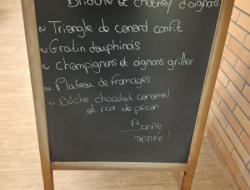 Brioche et chutney d'oignons
~ Triangle de canard confit
~ Gratin dauphinois
~ Champignons et oignons griller
~ Plateau de fromages
~ Bûche chocolat caramel
et noix de pécan
Bonne
année !